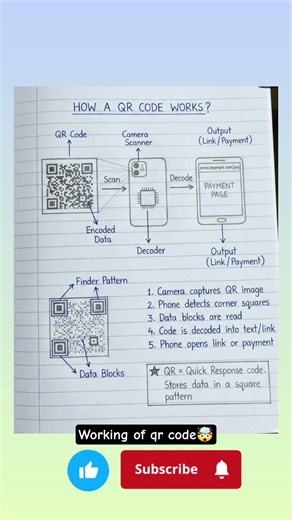 HOW A QR CODE WORKS?
QR Code
Camera
Scanner
Output
(Link/Payment)
Scan
Decode
www.example.com/pay
PAYMENT
PAGE
Encoded
Data
Decoder
Output
(Link/Payment)
Finder Pattern
Data Blocks
1. Camera captures QR image
2. Phone detects corner squares
3. Data blocks are read
4. Code is decoded into text/link
5. Phone opens link or payment
★ QR = Quick Response code.
Stores data in a square
pattern
Working of qr code🤯
Subscribe